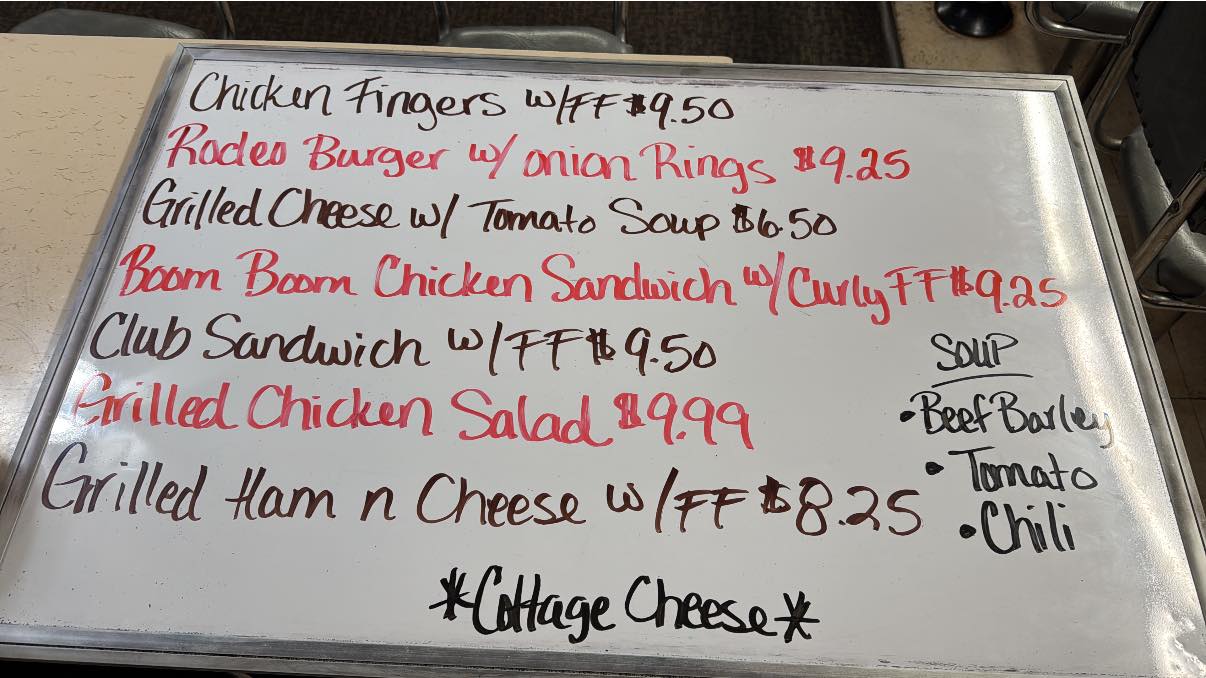 Chicken Fingers w/FF $9.50
Rodeo Burger w/ onion Rings $9.25
Grilled Cheese w/ Tomato Soup $6.50
Boom Boom Chicken Sandwich w/Curly FF $9.25
Club Sandwich w/FF $9.50
Grilled Chicken Salad $9.99
Grilled Ham n Cheese w/FF $8.25
SOUP
• Beef Barley
• Tomato
• Chili
*Cottage Cheese*